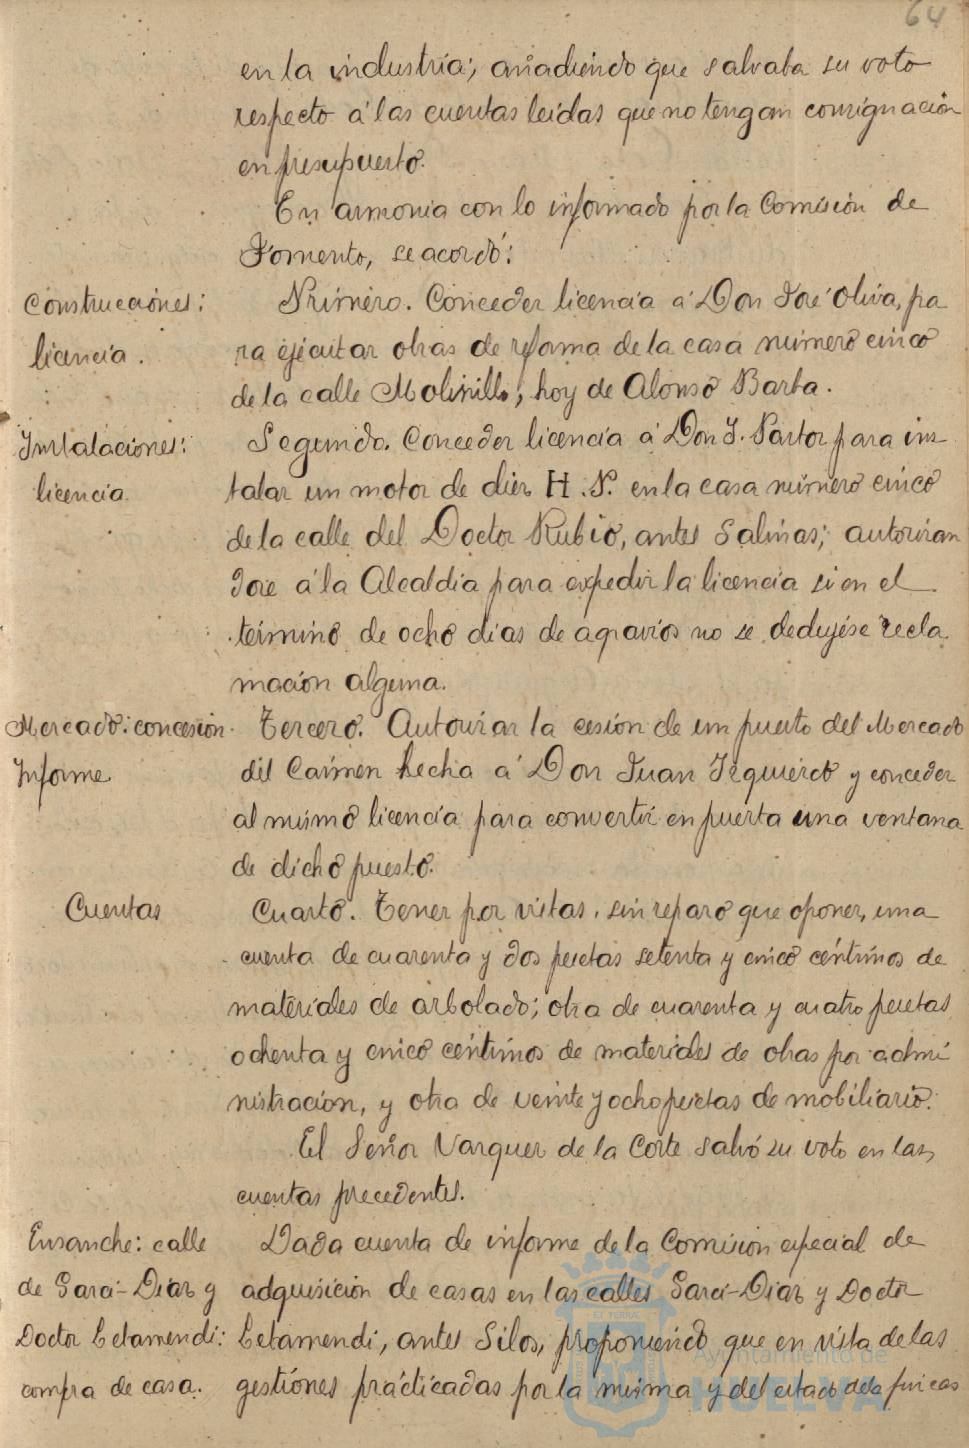 64
en la industria; añadiendo que salvaba su voto
respecto á las cuentas leidas que no tengan consignación
en presupuesto.
En armonia con lo informado por la Comisión de
Fomento, se acordó:
Construcciones:
licencia.
Primero. Conceder licencia á Don José Oliva, pa
ra ejecutar obras de reforma de la casa número cinco
de la calle Molinillo, hoy de Alonso Barba.
Instalaciones:
licencia.
Segundo. Conceder licencia á Don J. Pastor para ins
talar un motor de diez H.P. en la casa número cinco
de la calle del Doctor Rubio, antes Salinas; autorizan
dose á la Alcaldia para expedir la licencia si en el
término de ocho dias de agravios no se dedujése recla
mación alguna.
Mercado: concesión.
Informe
Tercero. Autorizar la cesión de un puesto del Mercado
del Carmen hecha á Don Juan Izquierdo y conceder
al mismo licencia para convertir en puerta una ventana
de dicho puesto.
Cuentas
Cuarto. Tener por vistas, sin reparo que oponer, una
cuenta de cuarenta y dos pesetas setenta y cinco céntimos de
materiales de arbolado; otra de cuarenta y cuatro pesetas
ochenta y cinco céntimos de materiales de obras por admi
nistración, y otra de veinte y ocho pesetas de mobiliario.
El Señor Vazquez de la Corte salvó su voto en las
cuentas precedentes.
Ensanche: calle
de Garci-Diaz y
Doctor Letamendi:
compra de casa.
Dada cuenta de informe de la Comision especial de
adquisición de casas en las calles Garci-Diaz y Doctor
Letamendi, antes Silos, proponiendo que en vista de las
gestiones practicadas por la misma y del estado de la fincas
Ayuntamiento de
HUELVA